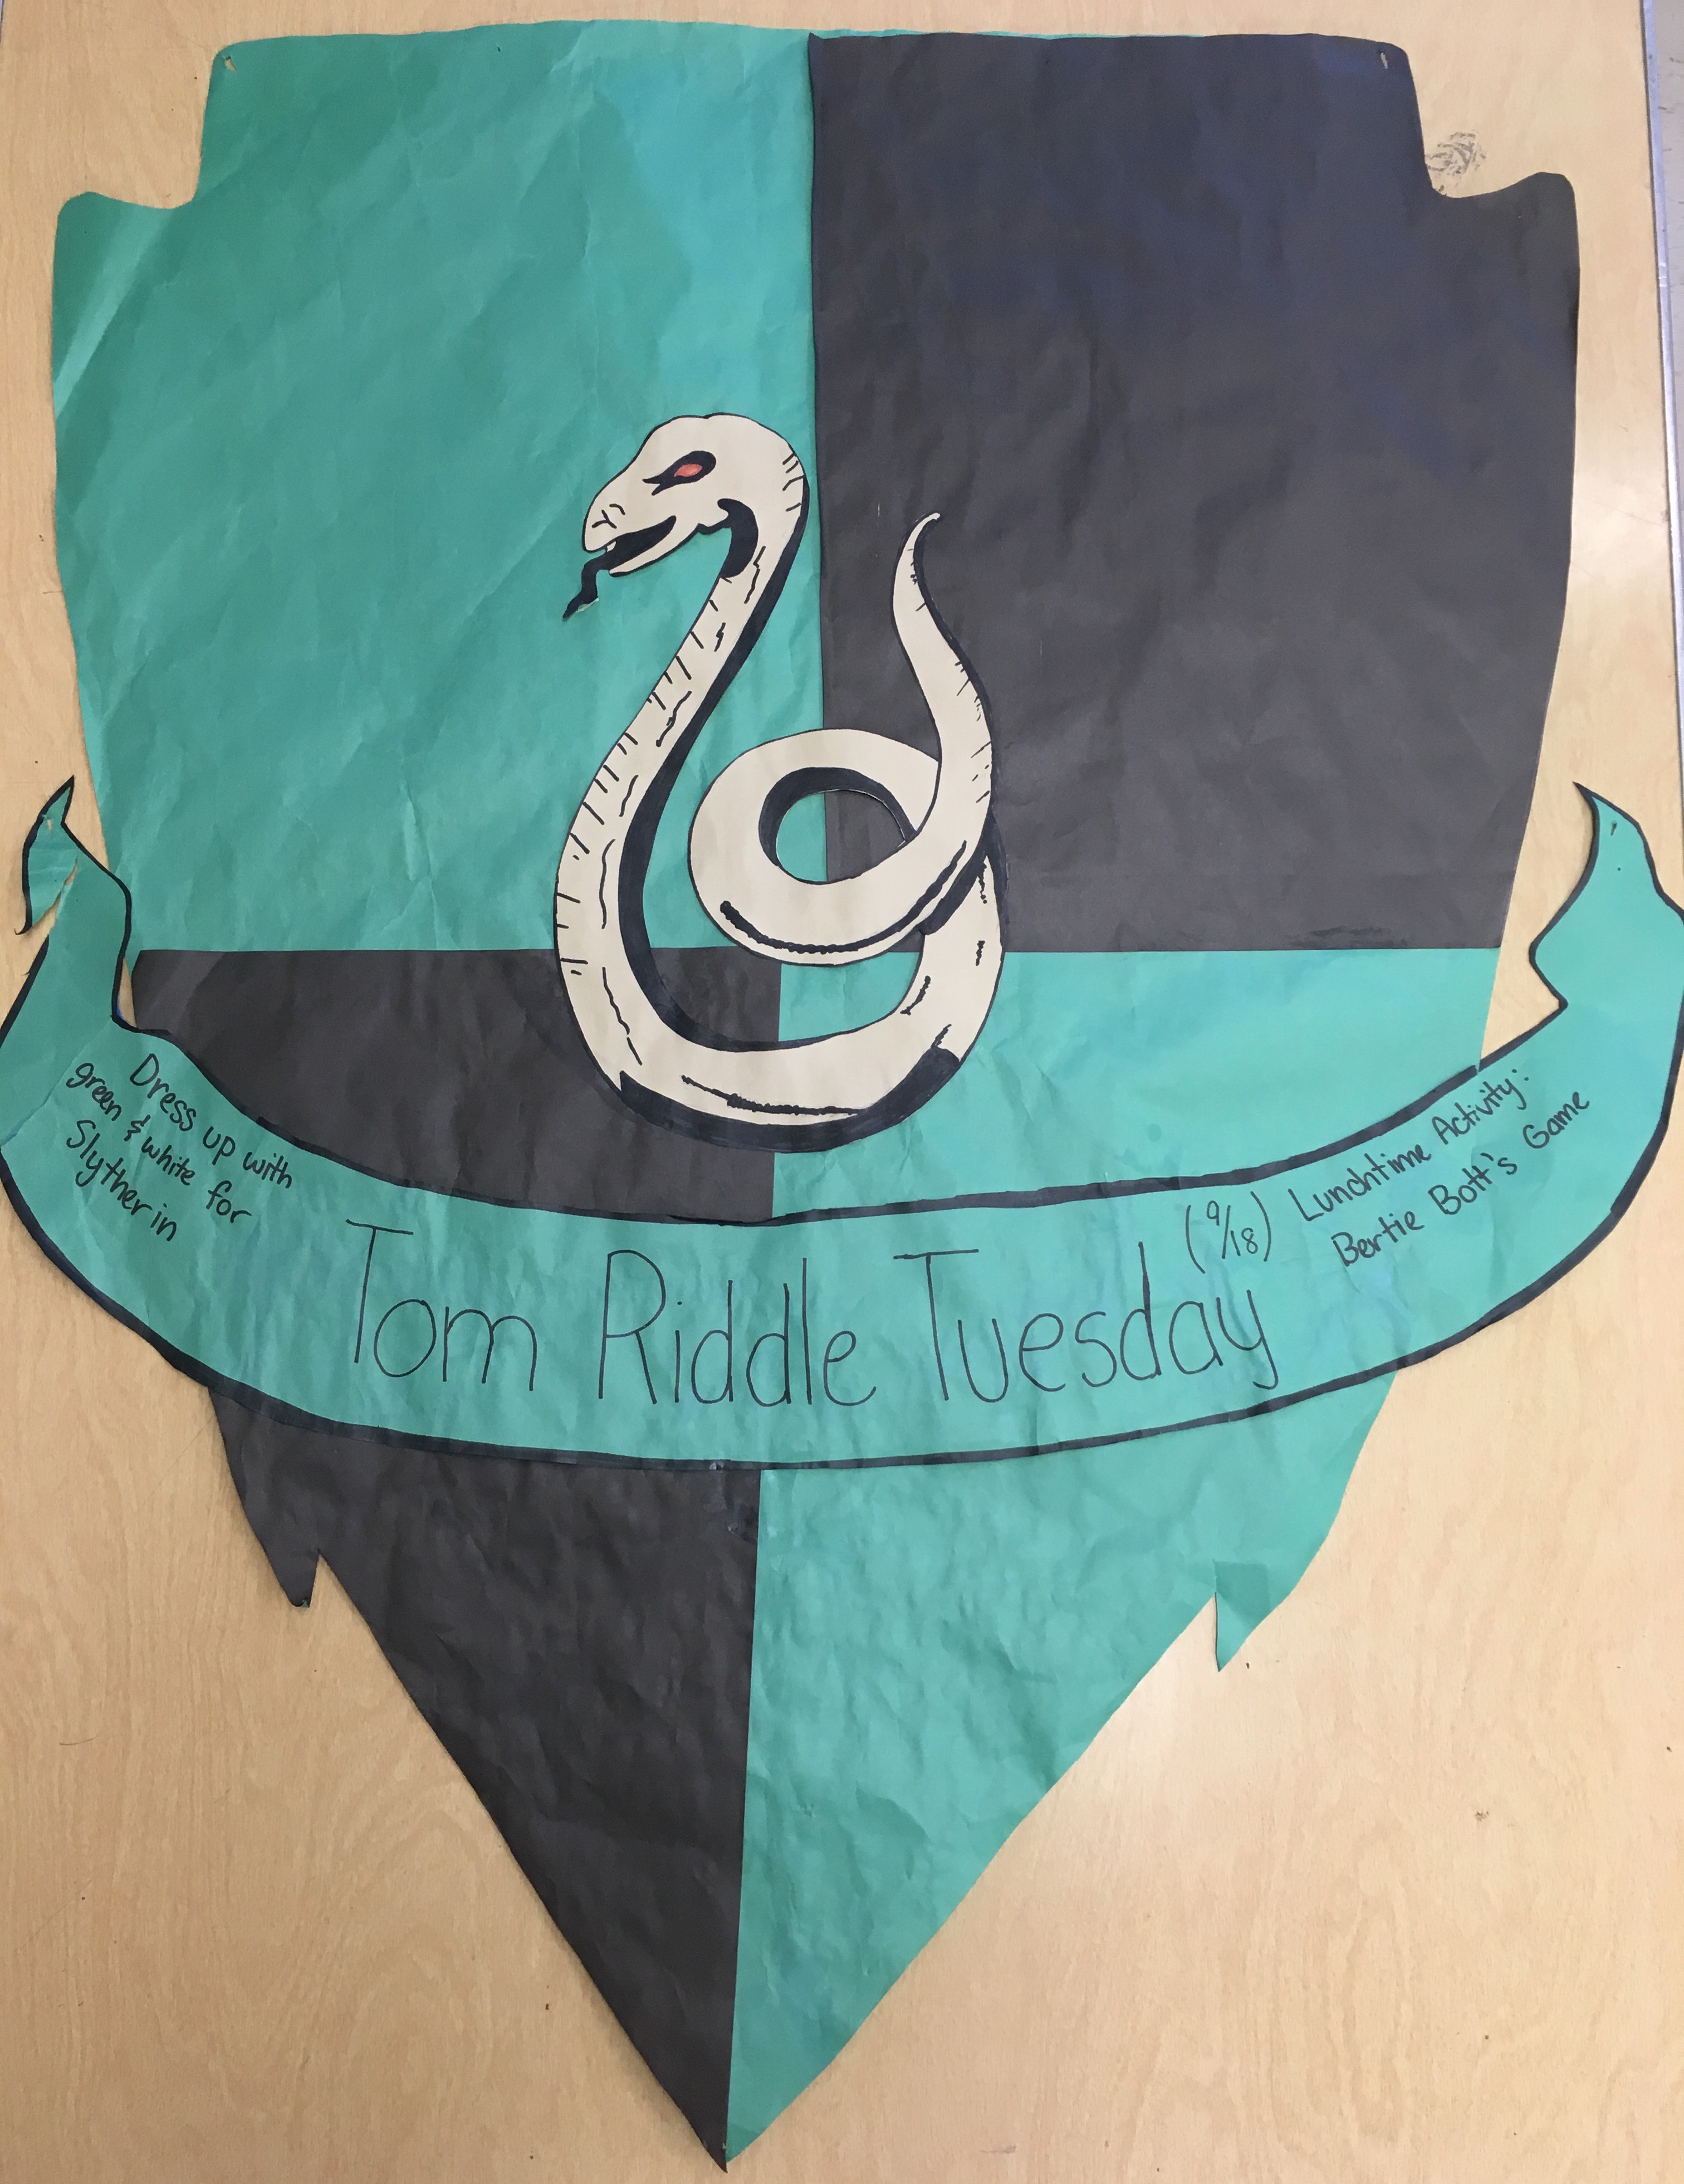 Dress up with
green & white for
Slytherin
Tom Riddle Tuesday
(9/18)
Lunchtime Activity:
Bertie Bott's Game